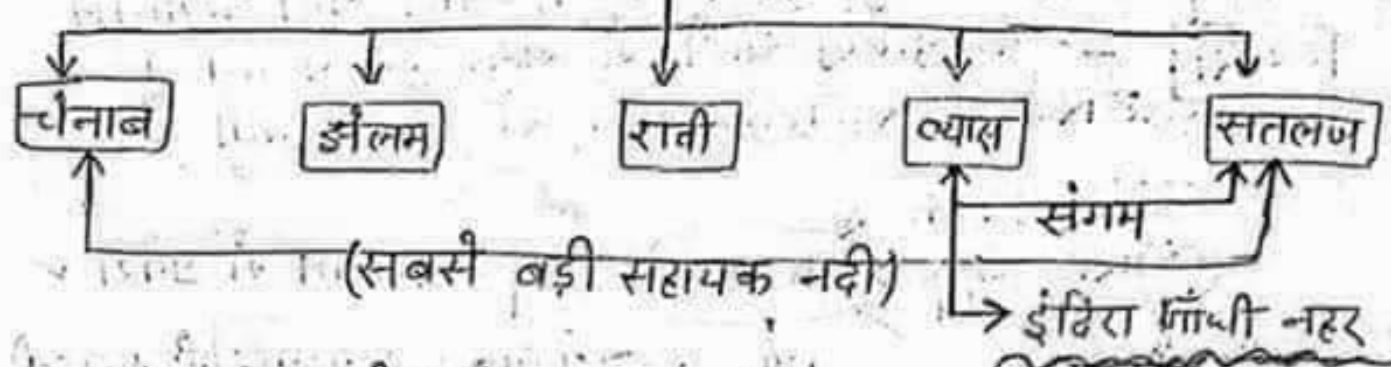 चेनाब झेलम रावी व्यास सतलज
संगम
(सबसे बड़ी सहायक नदी)
इंदिरा गाँधी नहर